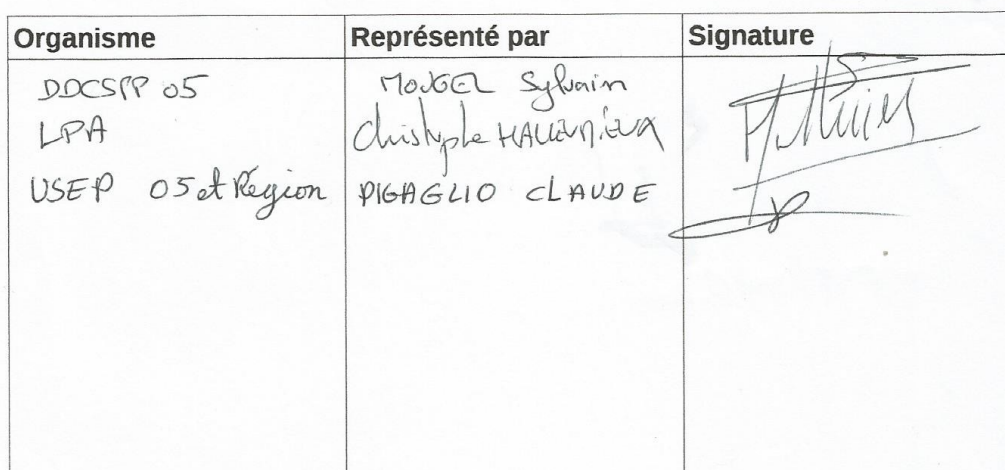 Organisme Représenté par Signature
DDCSPP 05 MOUGEL Sylvain
LPA Christophe
USEP 05 et Région PIGAGLIO CLAUDE